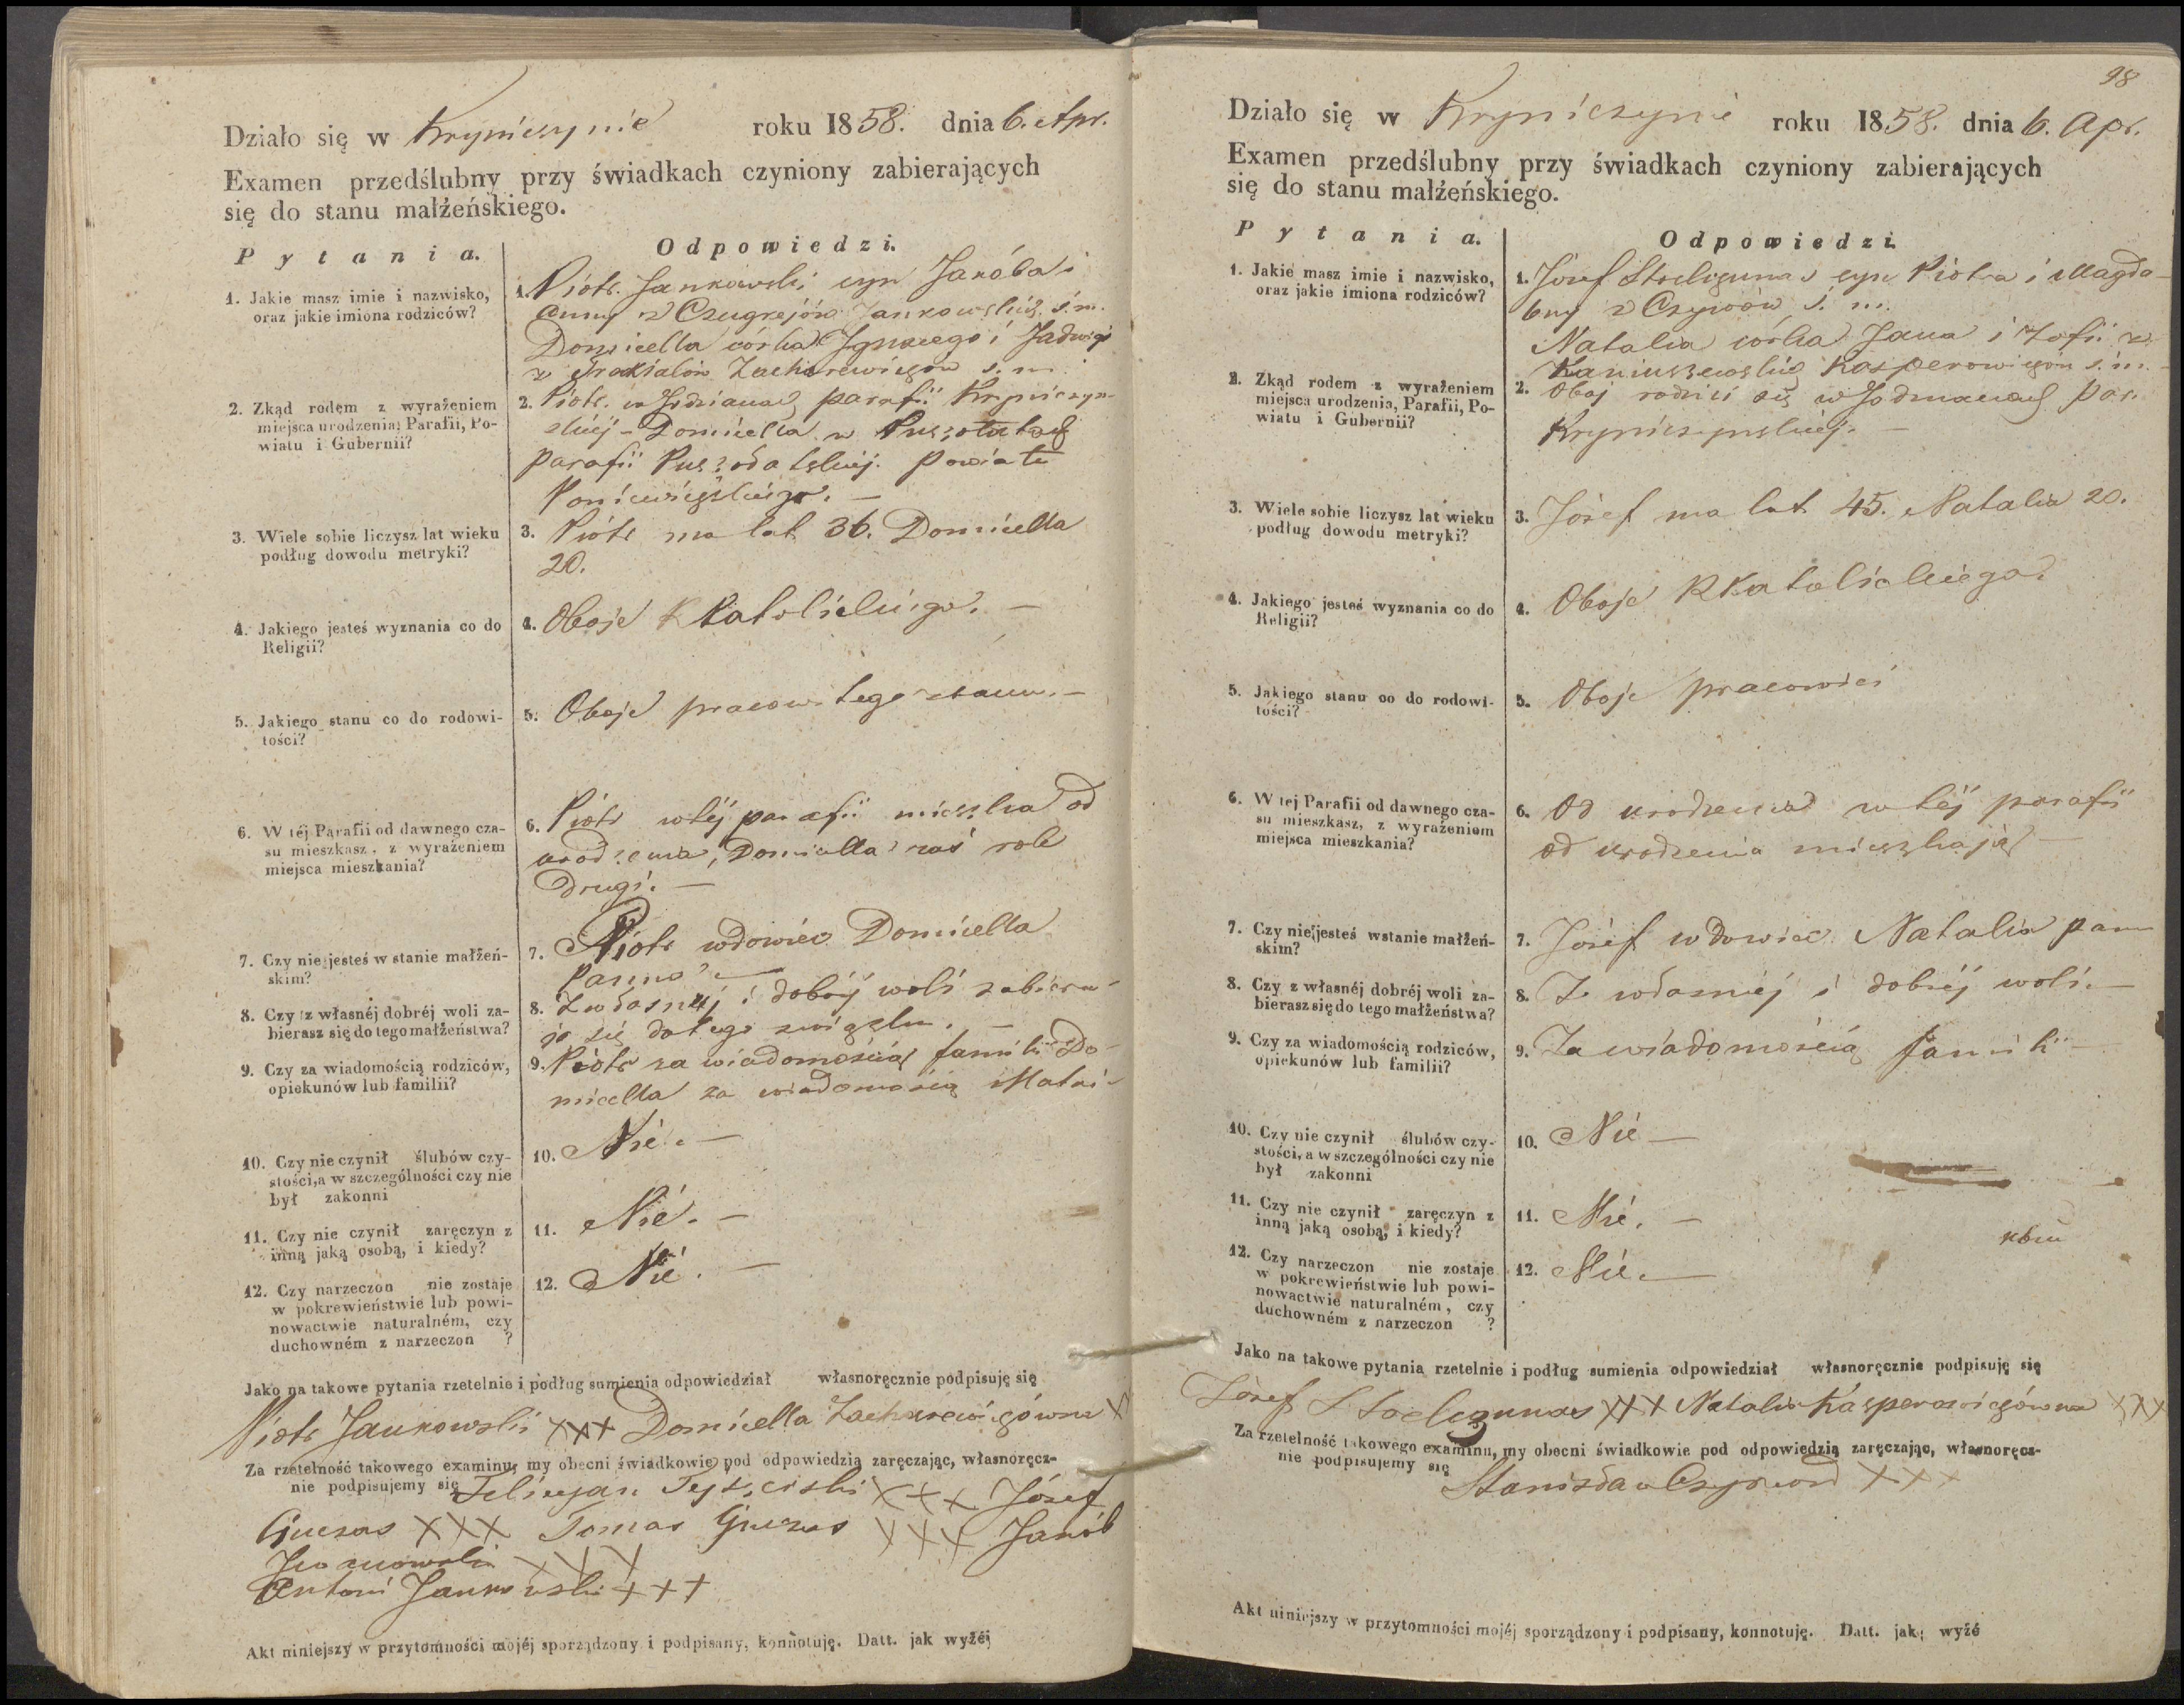 Działo się w Krypiczynie roku 1858. dnia 6. Apr.
Examen przedślubny przy świadkach czyniony zabierających
się do stanu małżeńskiego.
Pytania.
Odpowiedzi.
1. Jakie masz imie i nazwisko,
oraz jakie imiona rodziców?
1. Piotr Jankowski syn Jakóba i
Anny z Jankowskich ś. m.
Domicella córka Ignacego i Jadwigi
z Zacharewiczów ś. m.
2. Zkąd rodem z wyrażeniem
miejsca urodzenia, Parafii, Po-
wiatu i Gubernii?
2. Piotr w parafii Krypiczyn-
skiej - Domicella w
parafii powiatu
3. Wiele sobie liczysz lat wieku
podług dowodu metryki?
3. Piotr ma lat 36. Domicella
20.
4. Jakiego jesteś wyznania co do
Religii?
4. Oboje R Katolickiego. —
5. Jakiego stanu co do rodowi-
tości?
5. Oboje pracowitego stanu. —
6. W téj Parafii od dawnego cza-
su mieszkasz, z wyrażeniem
miejsca mieszkania?
6. Piotr w téj parafii mieszka od
urodzenia, Domicella zaś rok
drugi. —
7. Czy nie jesteś w stanie małżeń-
skim?
7. Piotr wdowiec Domicella
Panna —
8. Czy z własnéj dobréj woli za-
bierasz się do tego małżeństwa?
8. Z własnéj i dobréj woli zabiera-
ją się do tego związku. —
9. Czy za wiadomością rodziców,
opiekunów lub familii?
9. Piotr za wiadomością familii Do-
micella za wiadomością Matki —
10. Czy nie czynił ślubów czy-
stości, a w szczególności czy nie
był zakonni
10. Nié. —
11. Czy nie czynił zaręczyn z
inną jaką osobą, i kiedy?
11. Nié. —
12. Czy narzeczon nie zostaje
w pokrewieństwie lub powi-
nowactwie naturalném, czy
duchowném z narzeczon ?
12. Nié. —
Jako na takowe pytania rzetelnie i podług sumienia odpowiedział własnoręcznie podpisuję się
Piotr Jankowski XXX Domicella Zacharewiczówna X
Za rzetelność takowego examinu, my obecni świadkowie pod odpowiedzią zaręczając, własnoręcz-
nie podpisujemy się XXX Józef
Guczas XXX Tomas Guczas XXX Jakób
XXX
Antoni Jankowski XXX
Akt niniejszy w przytomności mojéj sporządzony i podpisany, konnotuję. Datt. jak wyżéj
98
Działo się w Krypiczynie roku 1858. dnia 6. Apr.
Examen przedślubny przy świadkach czyniony zabierających
się do stanu małżeńskiego.
Pytania.
Odpowiedzi.
1. Jakie masz imie i nazwisko,
oraz jakie imiona rodziców?
1. Józef syn Piotra i Magda-
leny z ś. m.
Natalia córka Jana i Zofii z
Kasperowiczów ś. m. —
2. Zkąd rodem z wyrażeniem
miejsca urodzenia, Parafii, Po-
wiatu i Gubernii?
2. Oboj rodzili się w par.
Krypiczynskiej. —
3. Wiele sobie liczysz lat wieku
podług dowodu metryki?
3. Józef ma lat 45. Natalia 20.
4. Jakiego jesteś wyznania co do
Religii?
4. Oboje R Katolickiego.
5. Jakiego stanu co do rodowi-
tości?
5. Oboje pracowici
6. W tej Parafii od dawnego cza-
su mieszkasz, z wyrażeniem
miejsca mieszkania?
6. Od urodzenia w téj parafii
od urodzenia mieszkają —
7. Czy nie jesteś wstanie małżeń-
skim?
7. Józef wdowiec Natalia pann
8. Czy z własnéj dobréj woli za-
bierasz się do tego małżeństwa?
8. Z własnéj i dobréj woli. —
9. Czy za wiadomością rodziców,
opiekunów lub familii?
9. Za wiadomością familii —
10. Czy nie czynił ślubów czy-
stości, a w szczególności czy nie
był zakonni
10. Nié —
11. Czy nie czynił zaręczyn z
inną jaką osobą, i kiedy?
11. Nié. —
12. Czy narzeczon nie zostaje
w pokrewieństwie lub powi-
nowactwie naturalném, czy
duchowném z narzeczon ?
12. Nié. —
Jako na takowe pytania rzetelnie i podług sumienia odpowiedział własnoręcznie podpisuję się
Józef XXX Natalia Kasperowiczówna XXX
Za rzetelność takowego examinu, my obecni świadkowie pod odpowiedzią zaręczając, własnoręcz-
nie podpisujemy się
Stanisław XXX
Akt niniejszy w przytomności mojéj sporządzony i podpisany, konnotuję. Datt. jak wyżé